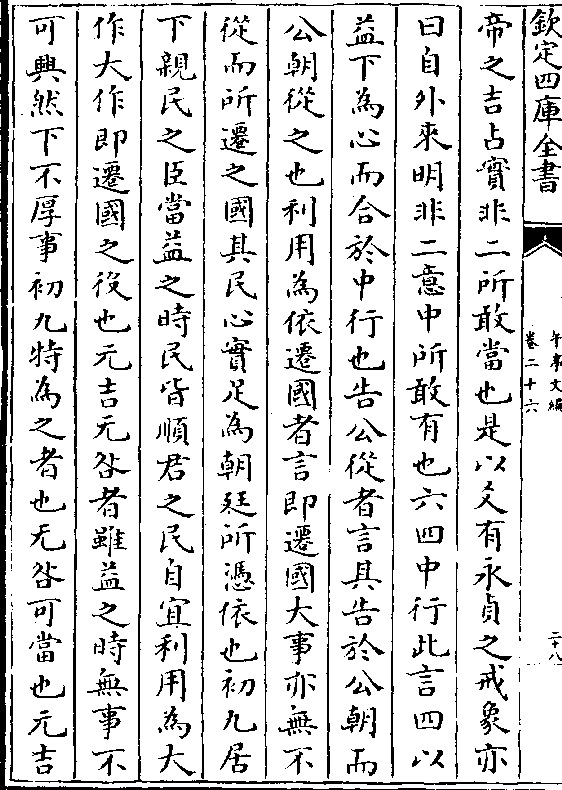 欽定四庫全書
午亭文編
卷二十六
二十八
帝之吉占實非二所敢當也是以爻有永貞之戒象亦
曰自外來明非二意中所敢有也六四中行此言四以
益下為心而合於中行也告公從者言其告於公朝而
公朝從之也利用為依遷國者言即遷國大事亦無不
從而所遷之國其民心實足為朝廷所憑依也初九居
下親民之臣當益之時民皆順君之民自宜利用為大
作大作即遷國之役也元吉无咎者雖益之時無事不
可興然下不厚事初九特為之者也无咎可當也元吉